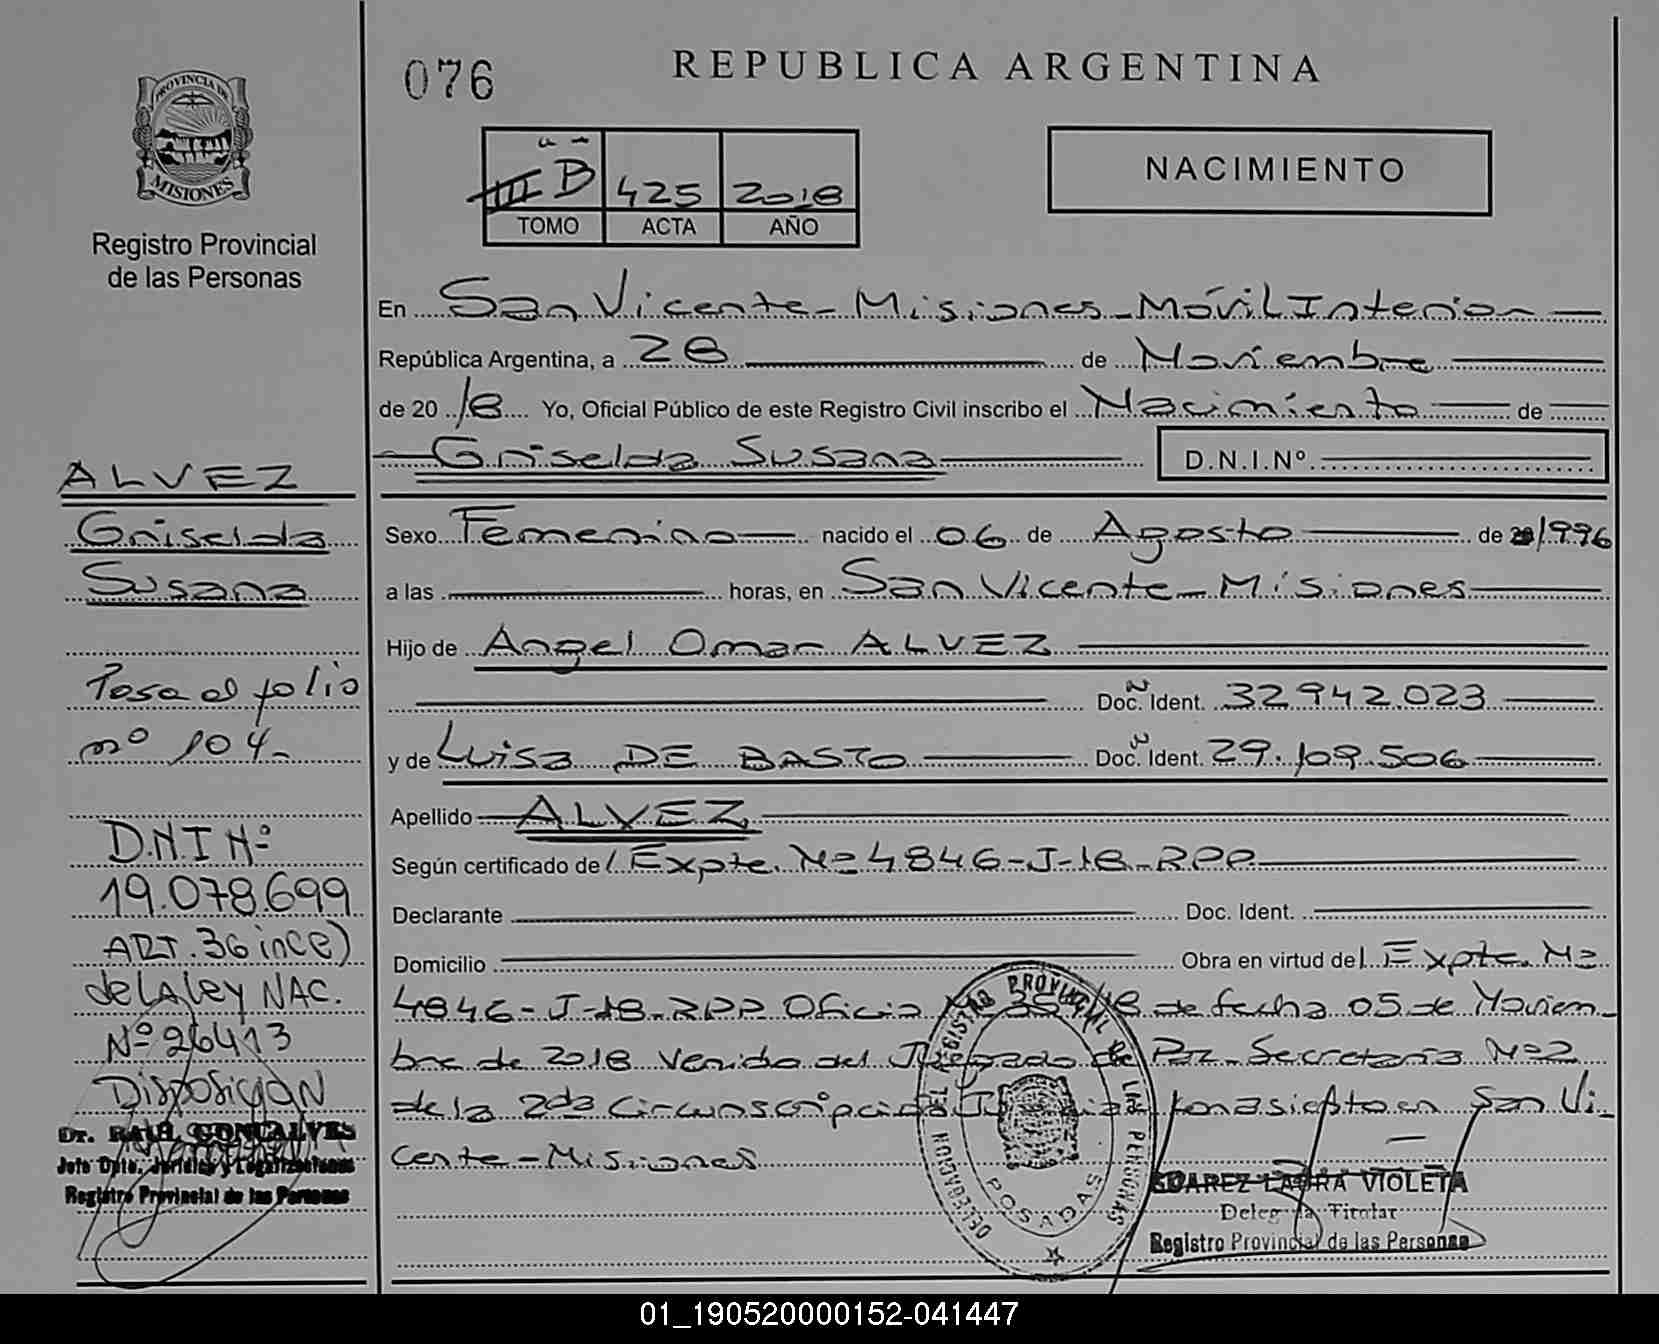 PROVINCIA DE
MISIONES
Registro Provincial
de las Personas
ALVEZ
Griselda
Susana
Pasa al folio
nº 104-
D.N.I Nº
19.078.699
ART. 36 inc e)
de la ley NAC.
Nº 26413
Disposición
Dr. RAUL GONCALVES
Jefe Dpto. Jurídico y Legalizaciones
Registro Provincial de las Personas
076
REPUBLICA ARGENTINA
III B 425 2018
TOMO ACTA AÑO
NACIMIENTO
En San Vicente - Misiones - Móvil Interior
República Argentina, a 28 de Noviembre
de 20 18 Yo, Oficial Público de este Registro Civil inscribo el Nacimiento de
Griselda Susana D.N.I.Nº
Sexo Femenino nacido el 06 de Agosto de 1996
a las horas, en San Vicente - Misiones
Hijo de Angel Omar ALVEZ
Doc. Ident. 32.942.023
y de Luisa DE BASTO Doc. Ident. 29.109.506
Apellido ALVEZ
Según certificado de l Expte. Nº 4846-J-18-RPP
Declarante Doc. Ident.
Domicilio Obra en virtud de l Expte. Nº
4846-J-18-RPP Oficio Nº /18 de fecha 05 de Noviem
bre de 2018 Venido del Juzgado de Paz - Secretaria Nº 2
de la 2da Circunscripción Judicial con asiento en San Vi
cente - Misiones
DELEGACION NOVIL DEL REGISTRO PROVINCIAL DE LAS PERSONAS
POSADAS
SUAREZ LAURA VIOLETA
Delegada Titular
Registro Provincial de las Personas
01_190520000152-041447